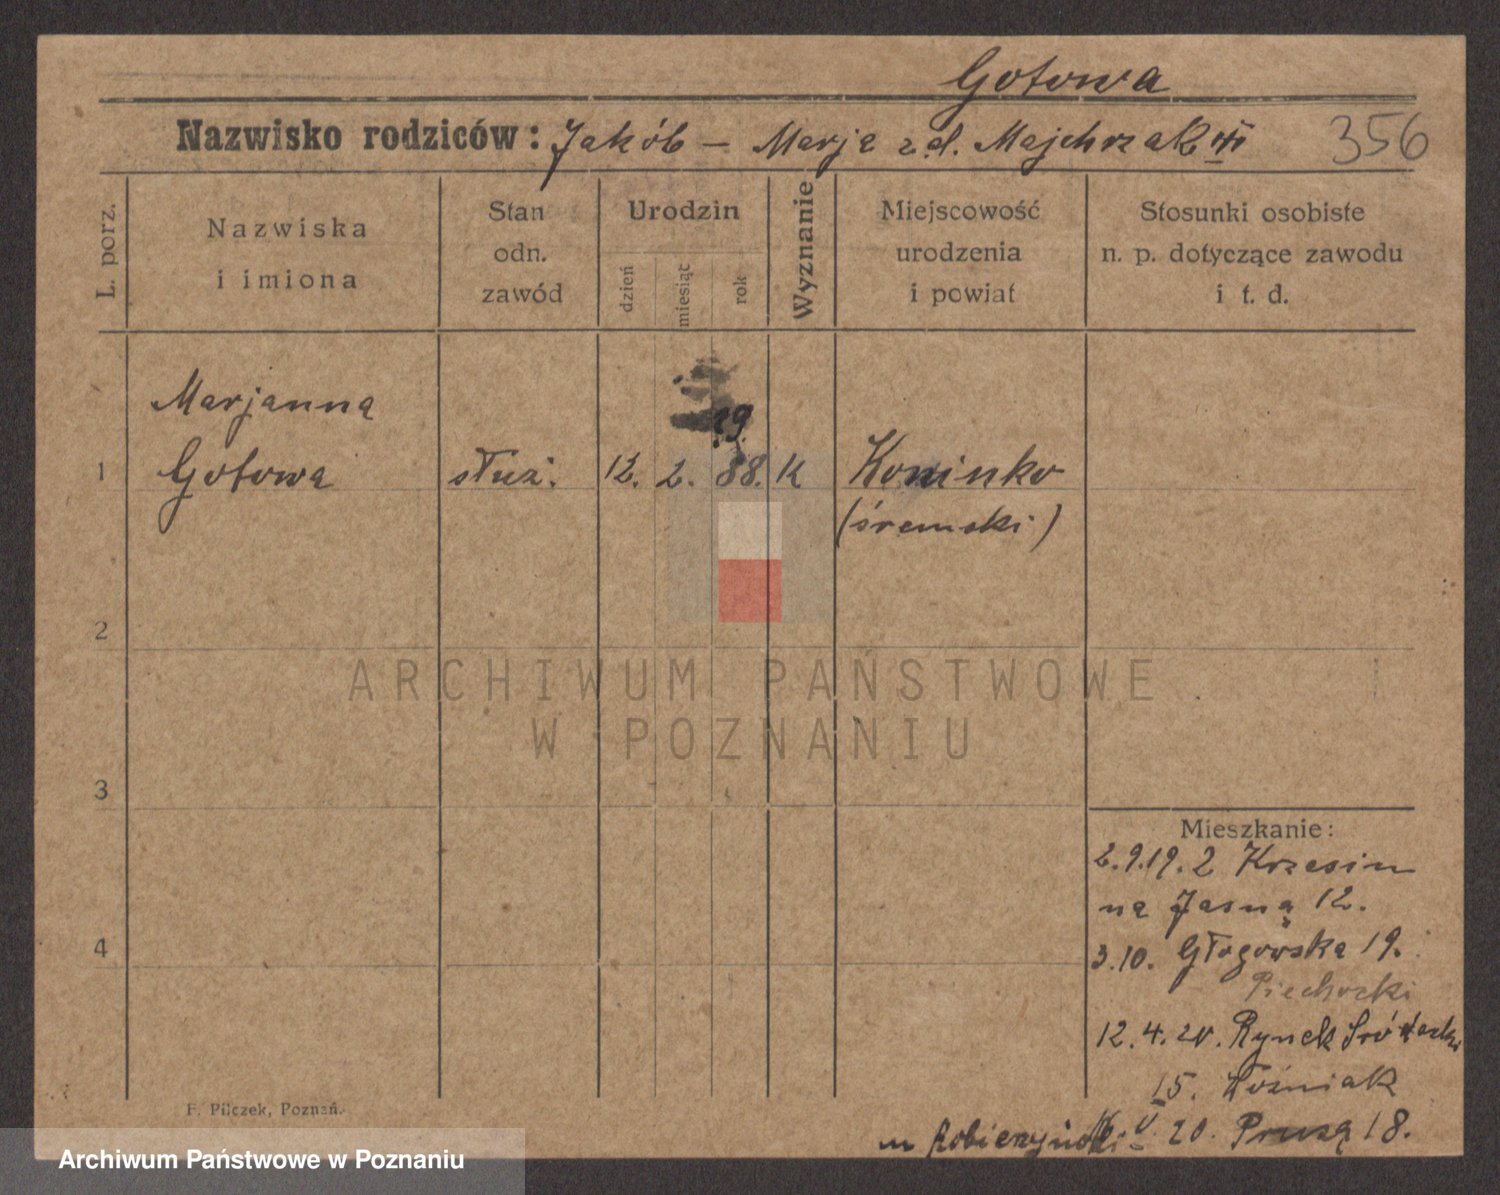 Gotowa
Nazwisko rodziców: Jakób – Marja z d. Majchrzak
356
L. porz.
Nazwiska
i imiona
Stan
odn.
zawód
Urodzin
dzień
miesiąc
rok
Wyznanie
Miejscowość
urodzenia
i powiat
Stosunki osobiste
n. p. dotyczące zawodu
i t. d.
Marjanna
1 Gotowa służ. 12. 2. 88. K Koninko
(śremski)
2
ARCHIWUM PAŃSTWOWE
W POZNANIU
3
4
Mieszkanie:
2.9.19. z Krzesin
na Jasną 12.
3.10. Głogowska 19.
Piechocki
12.4.20. Rynek Śródecki
15. Woźniak
20. 18.
F. Pilczek, Poznań.
Archiwum Państwowe w Poznaniu